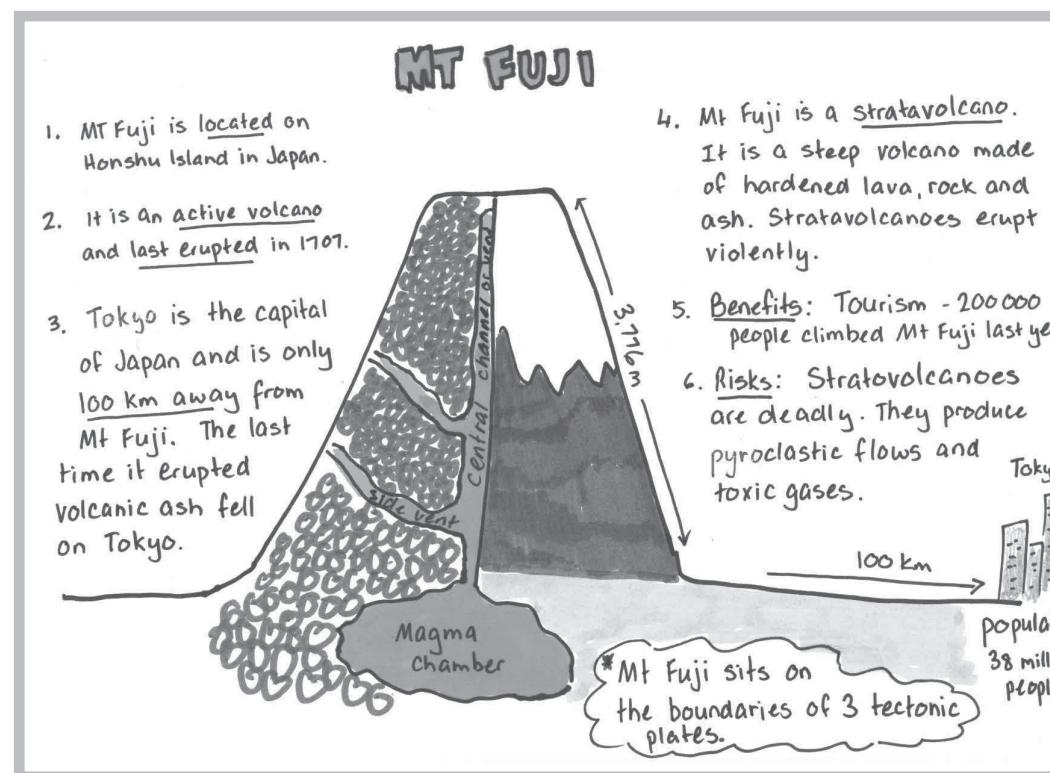 MT FUJI
1. MT Fuji is located on
Honshu Island in Japan.
2. It is an active volcano
and last erupted in 1707.
3. Tokyo is the capital
of Japan and is only
100 km away from
Mt Fuji. The last
time it erupted
volcanic ash fell
on Tokyo.
central channel or vent
side vent
Magma
Chamber
3.776m
4. Mt Fuji is a stratavolcano.
It is a steep volcano made
of hardened lava, rock and
ash. Stratavolcanoes erupt
violently.
5. Benefits: Tourism - 200 000
people climbed Mt Fuji last ye
6. Risks: Stratovolcanoes
are deadly. They produce
pyroclastic flows and
toxic gases.
Toky
100 km
popula
38 mill
peopl
*Mt Fuji sits on
the boundaries of 3 tectonic
plates.